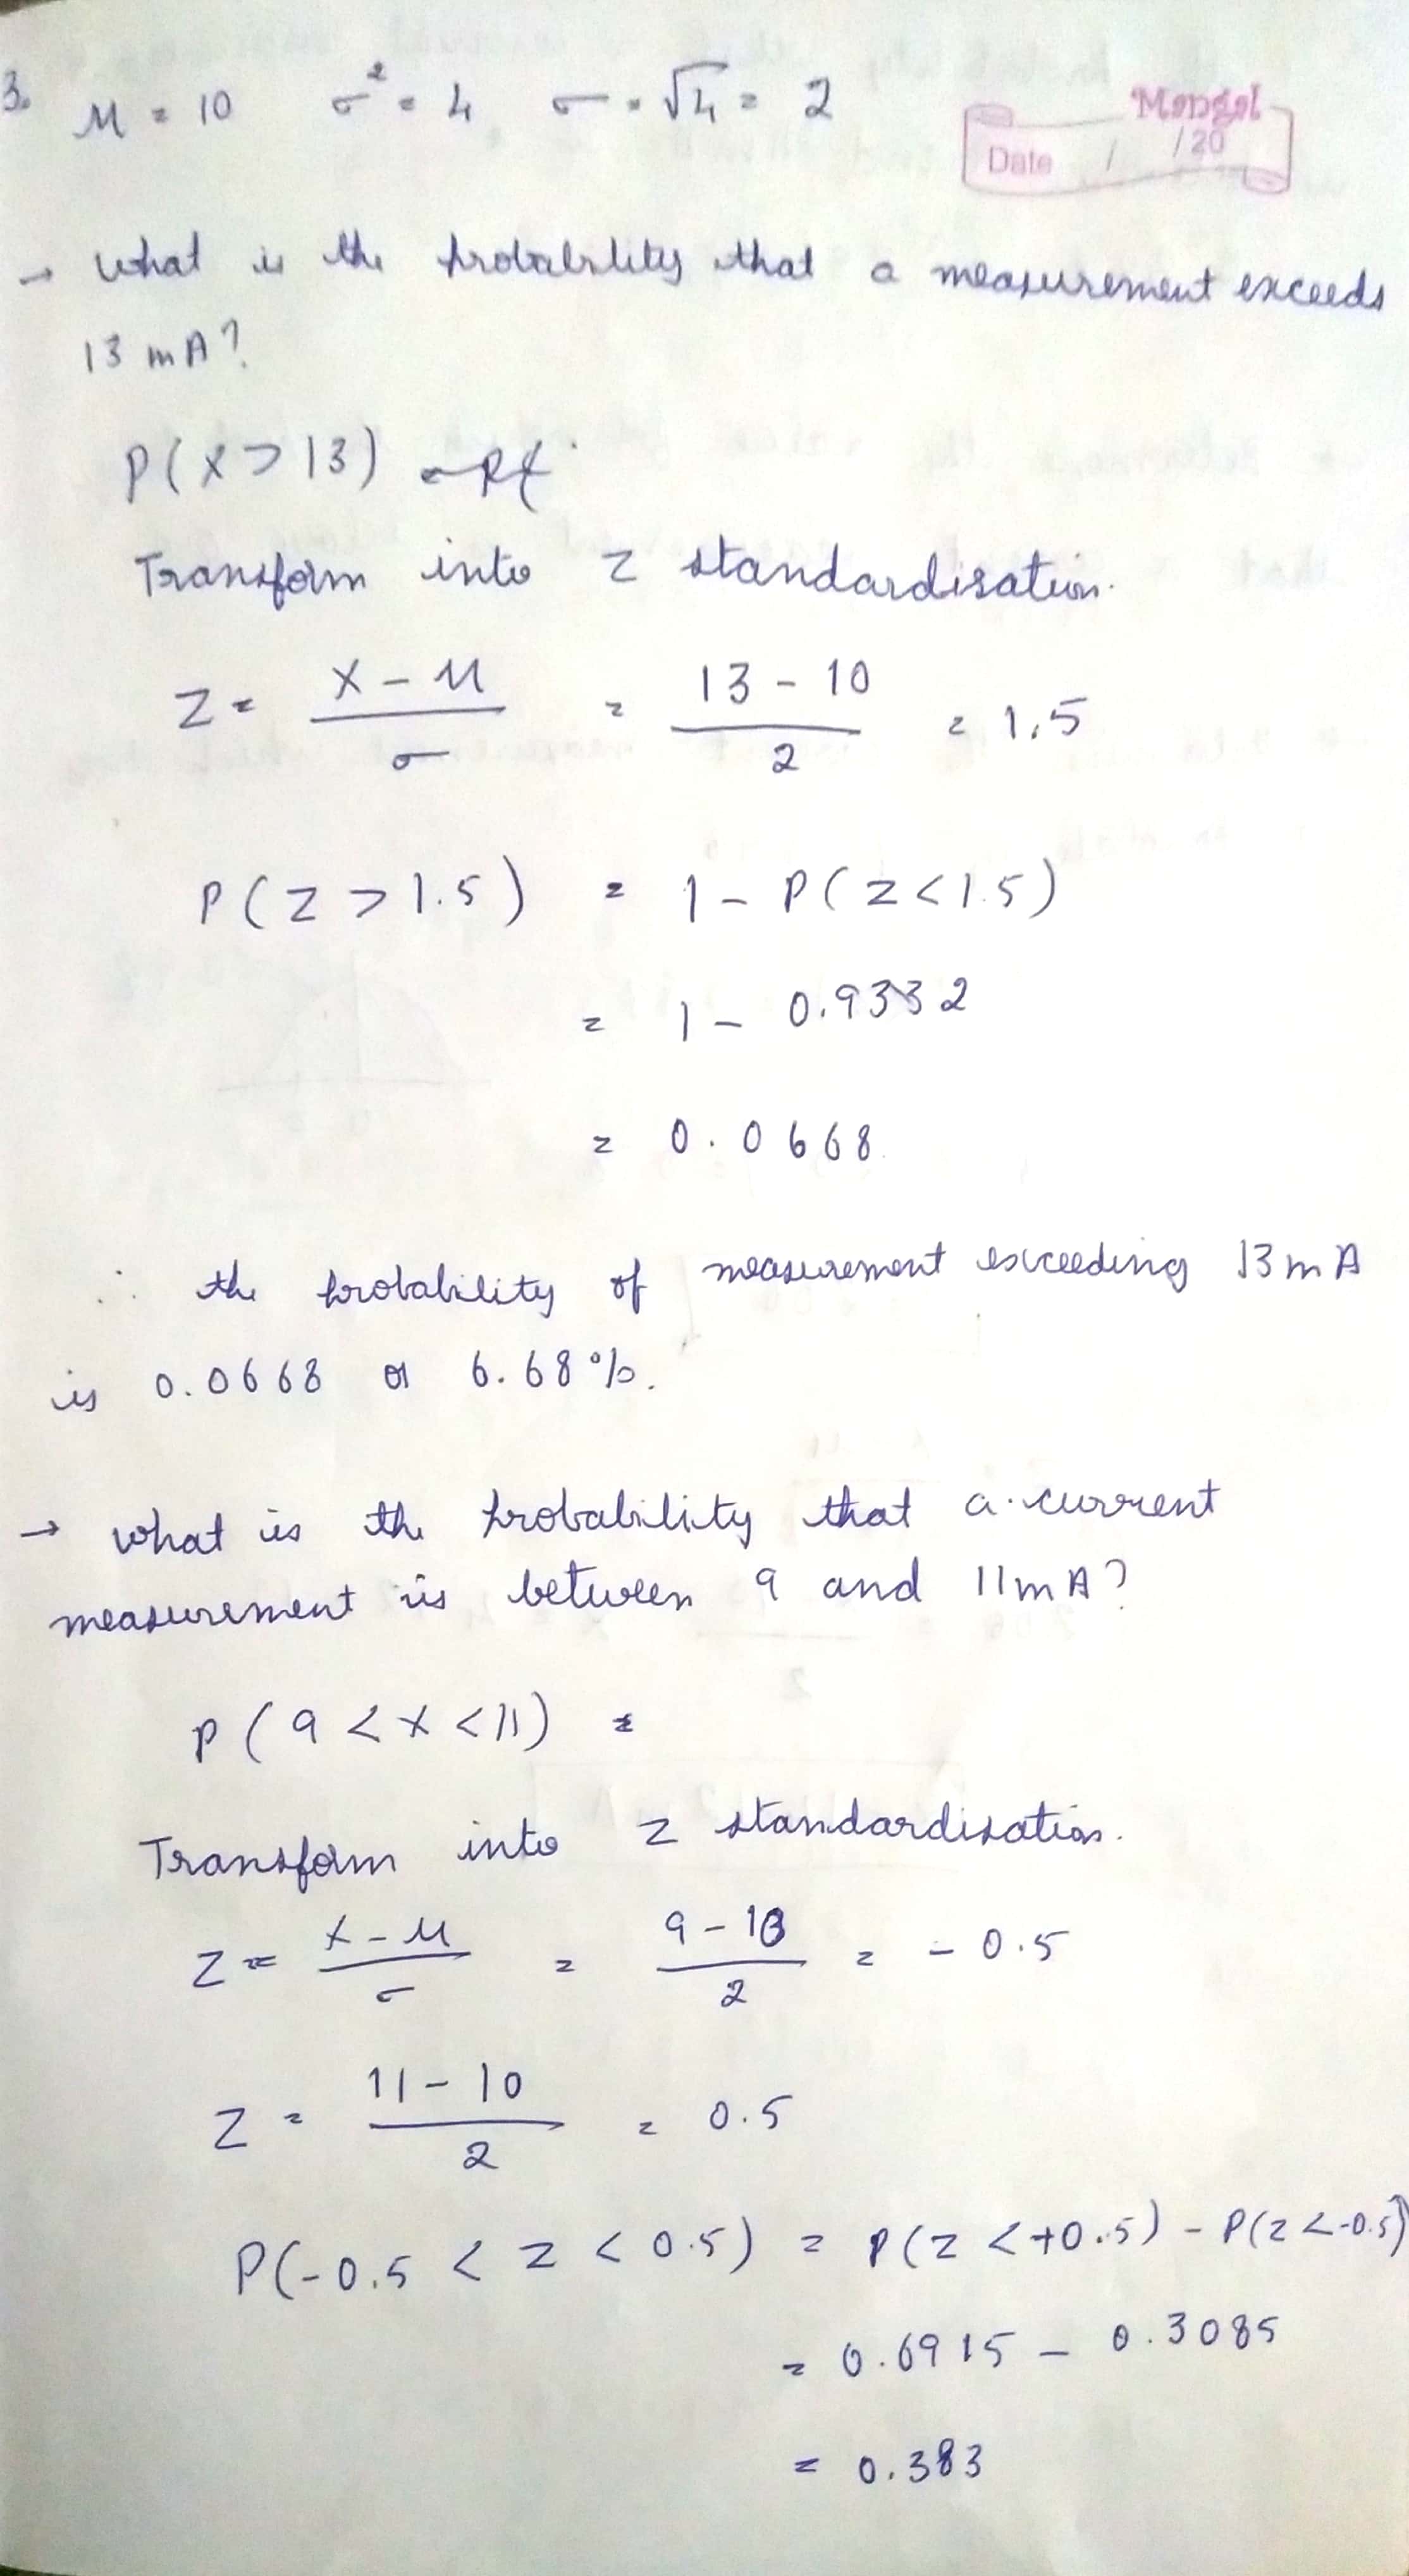 3. μ = 10 σ² = 4 σ = √4 = 2
Mangal
Date / /20
→ What is the probability that a measurement exceeds
13 mA?
P(X > 13)
Transform into Z standardisation.
Z = (X - μ)/σ = (13 - 10)/2 = 1.5
P(Z > 1.5) = 1 - P(Z < 1.5)
= 1 - 0.9332
= 0.0668
∴ the probability of measurement exceeding 13 mA
is 0.0668 or 6.68%.
→ What is the probability that a current
measurement is between 9 and 11 mA?
P(9 < X < 11) =
Transform into Z standardisation.
Z = (X - μ)/σ = (9 - 10)/2 = -0.5
Z = (11 - 10)/2 = 0.5
P(-0.5 < Z < 0.5) = P(Z < +0.5) - P(Z < -0.5)
= 0.6915 - 0.3085
= 0.383